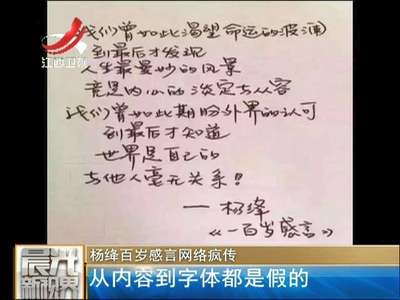 我们曾如此渴望命运的波澜
到最后才发现
人生最曼妙的风景
竟是内心的淡定与从容
我们曾如此期盼外界的认可
到最后才知道
世界是自己的
与他人毫无关系!
——杨绛
《一百岁感言》
江西卫视
杨绛百岁感言网络疯传
晨光新视界
从内容到字体都是假的